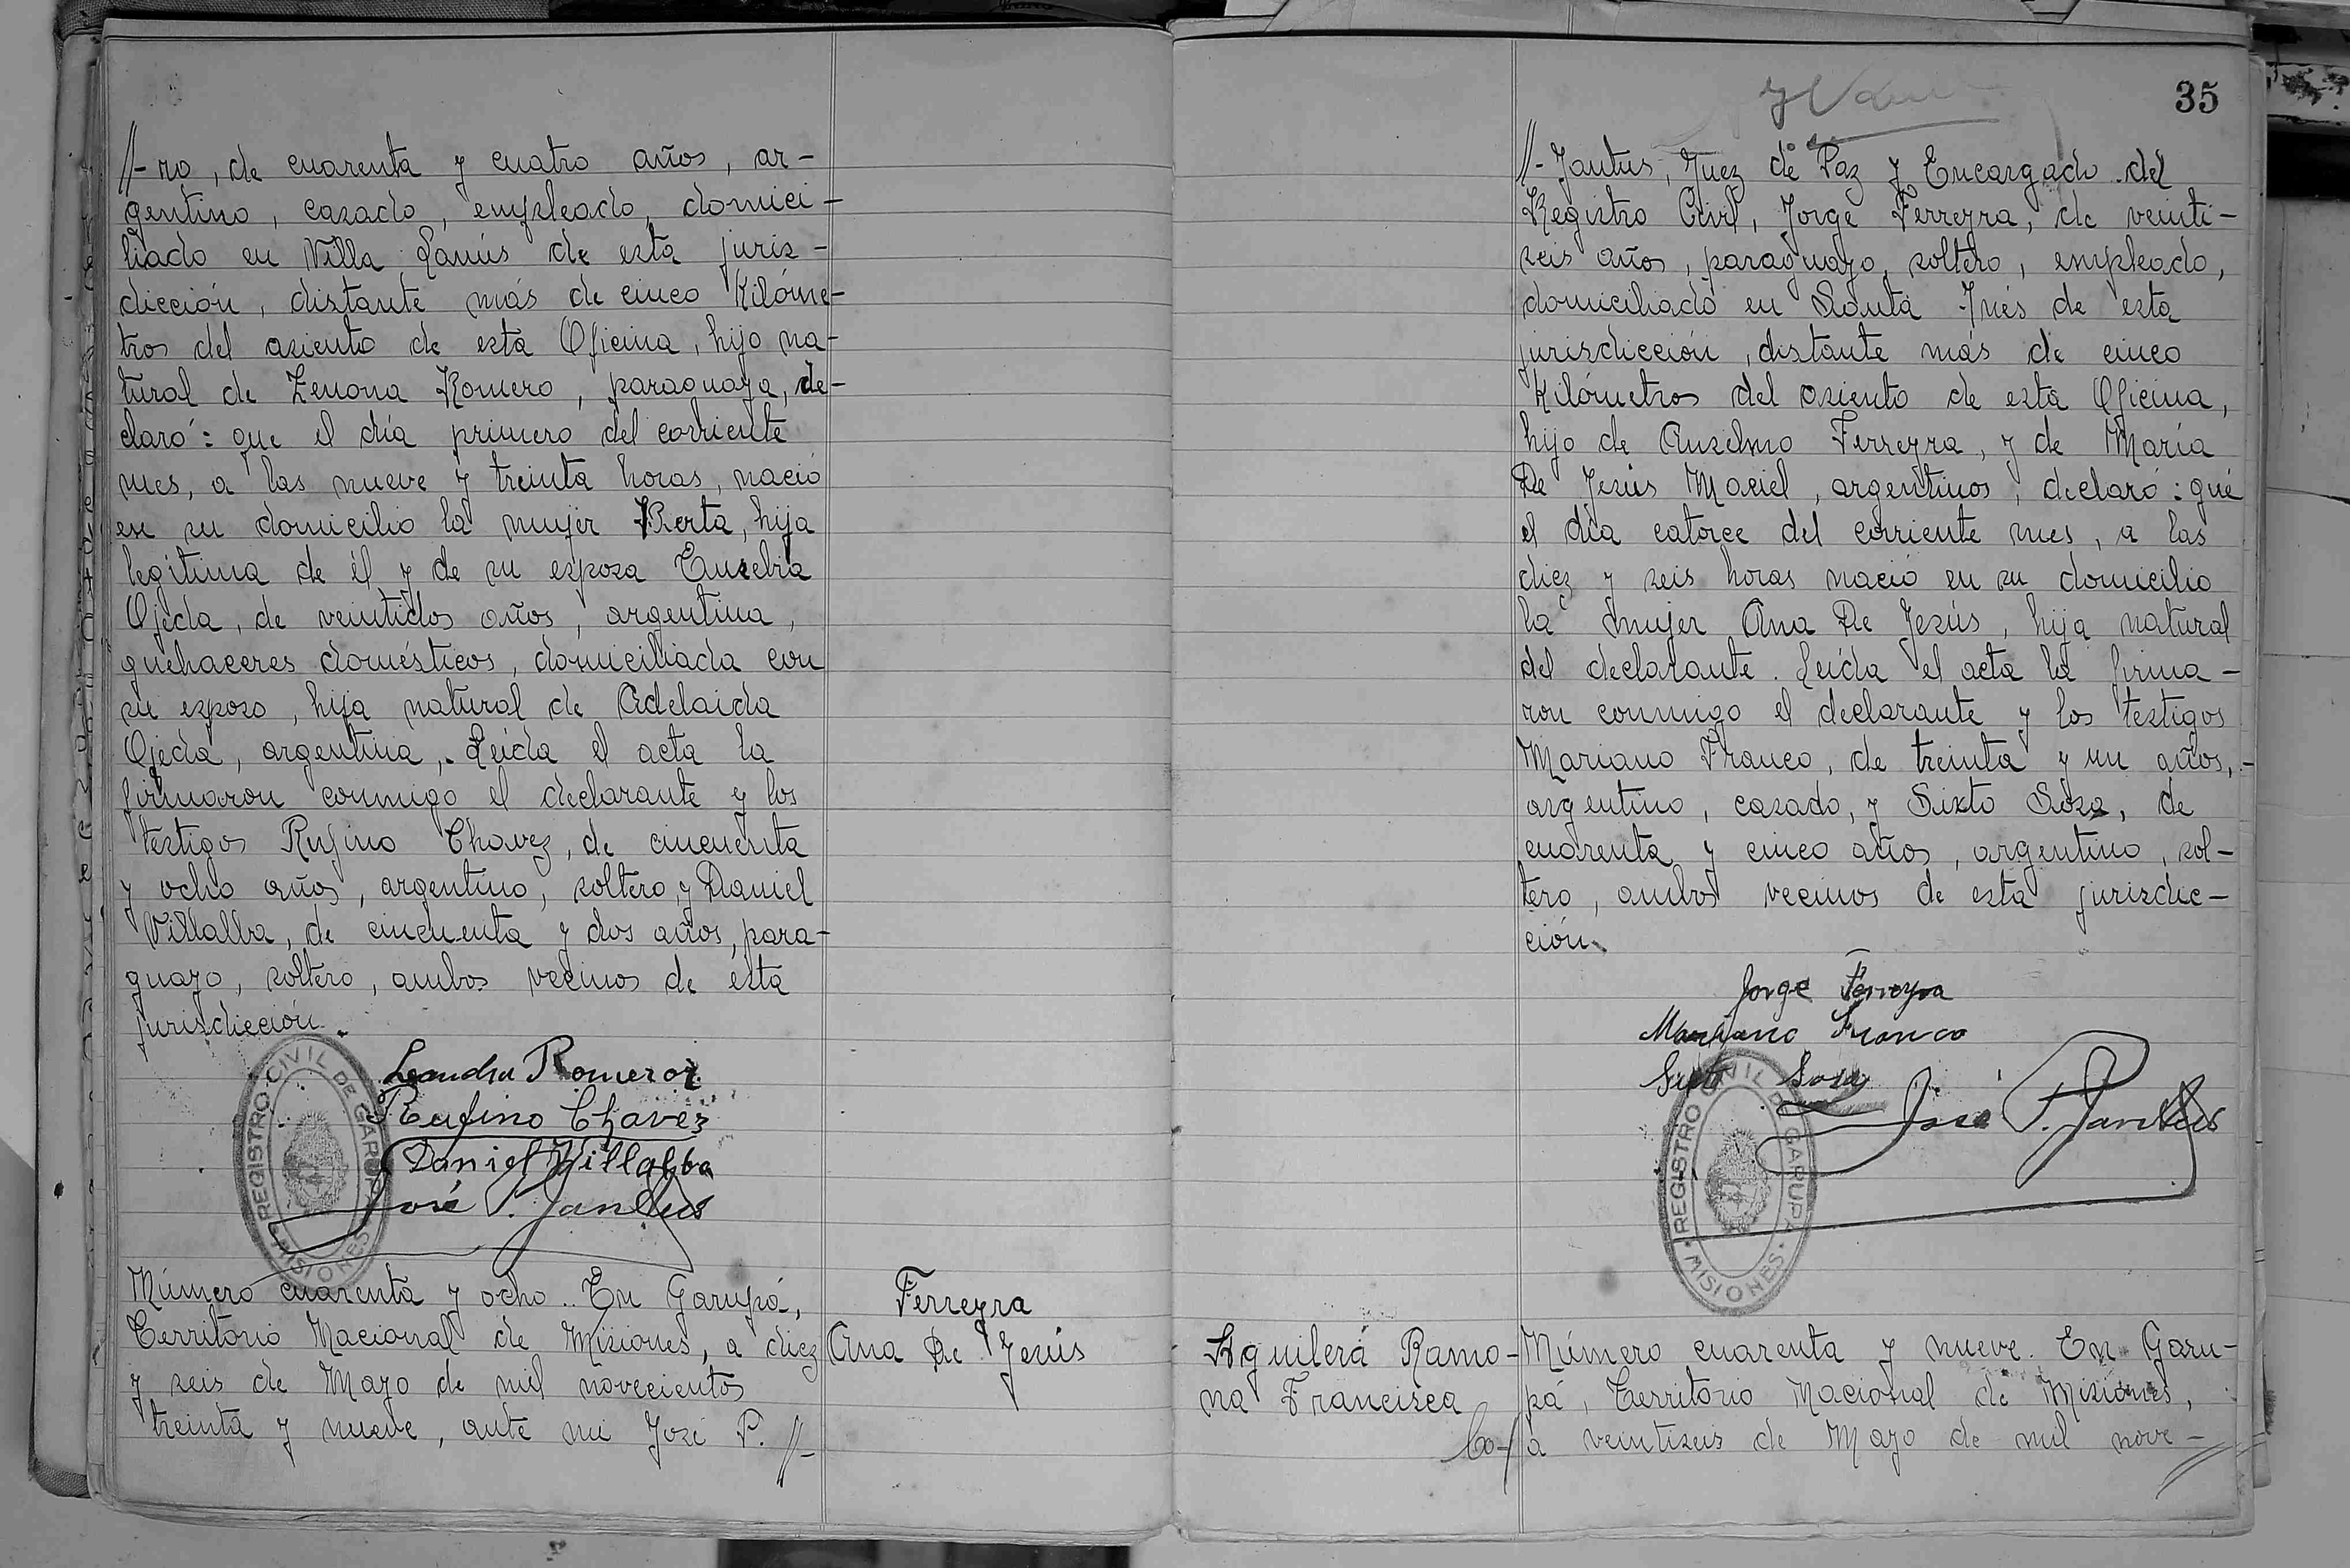 //-ro, de cuarenta y cuatro años, ar-
gentino, casado, empleado, domici-
liado en Villa Lanús de esta juris-
dicción, distante más de cinco Kilóme-
tros del asiento de esta Oficina, hijo na-
tural de Zenona Romero, paraguaya, de-
claró: que el día primero del corriente
mes, a las nueve y treinta horas, nació
en su domicilio la mujer Berta, hija
legítima de él y de su esposa Eusebia
Ojeda, de veintidos años, argentina,
quehaceres domésticos, domiciliada con
su esposo, hija natural de Adelaida
Ojeda, argentina,. Leída el acta la
firmaron conmigo el declarante y los
testigos Rufino Chavez, de cincuenta
y ocho años, argentino, soltero, y Daniel
Villalba, de cincuenta y dos años, para-
guayo, soltero, ambos vecinos de esta
jurisdicción.
Leandru Romeror
Rufino Chavez
Daniel Villalba
José P. Jantus
REGISTRO CIVIL DE GARUPA
MISIONES
Número cuarenta y ocho.. En Garupá,
Territorio Nacional de Misiones, a diez
y seis de Mayo de mil novecientos
treinta y nueve, ante mi José P. //-
Ferreyra
Ana De Jesús
35
//-Jantus, Juez de Paz y Encargado del
Registro Civil, Jorge Ferreyra, de veinti-
seis años, paraguayo, soltero, empleado,
domiciliado en Santa Inés de esta
jurisdicción, distante más de cinco
Kilómetros del asiento de esta Oficina,
hijo de Anselmo Ferreyra, y de María
De Jesús Maciel, argentinos, declaró: qué
el día catorce del corriente mes, a las
diez y seis horas nació en su domicilio
la mujer Ana De Jesús, hija natural
del declarante. Leída el acta la firma-
ron conmigo el declarante y los testigos
Mariano Franco, de treinta y un años,-
argentino, casado, y Sixto Sosa, de
cuarenta y cinco años, argentino, sol-
tero, ambos vecinos de esta jurisdic-
ción.
Jorge Ferreyra
Mariano Franco
Sixto Sosa
José P. Jantus
REGISTRO CIVIL DE GARUPA
MISIONES
Aguilera Ramo-
na Francisca
Número cuarenta y nueve. En Garu-
pá, Territorio Nacional de Misiones,
a veintiseis de Mayo de mil nove-//